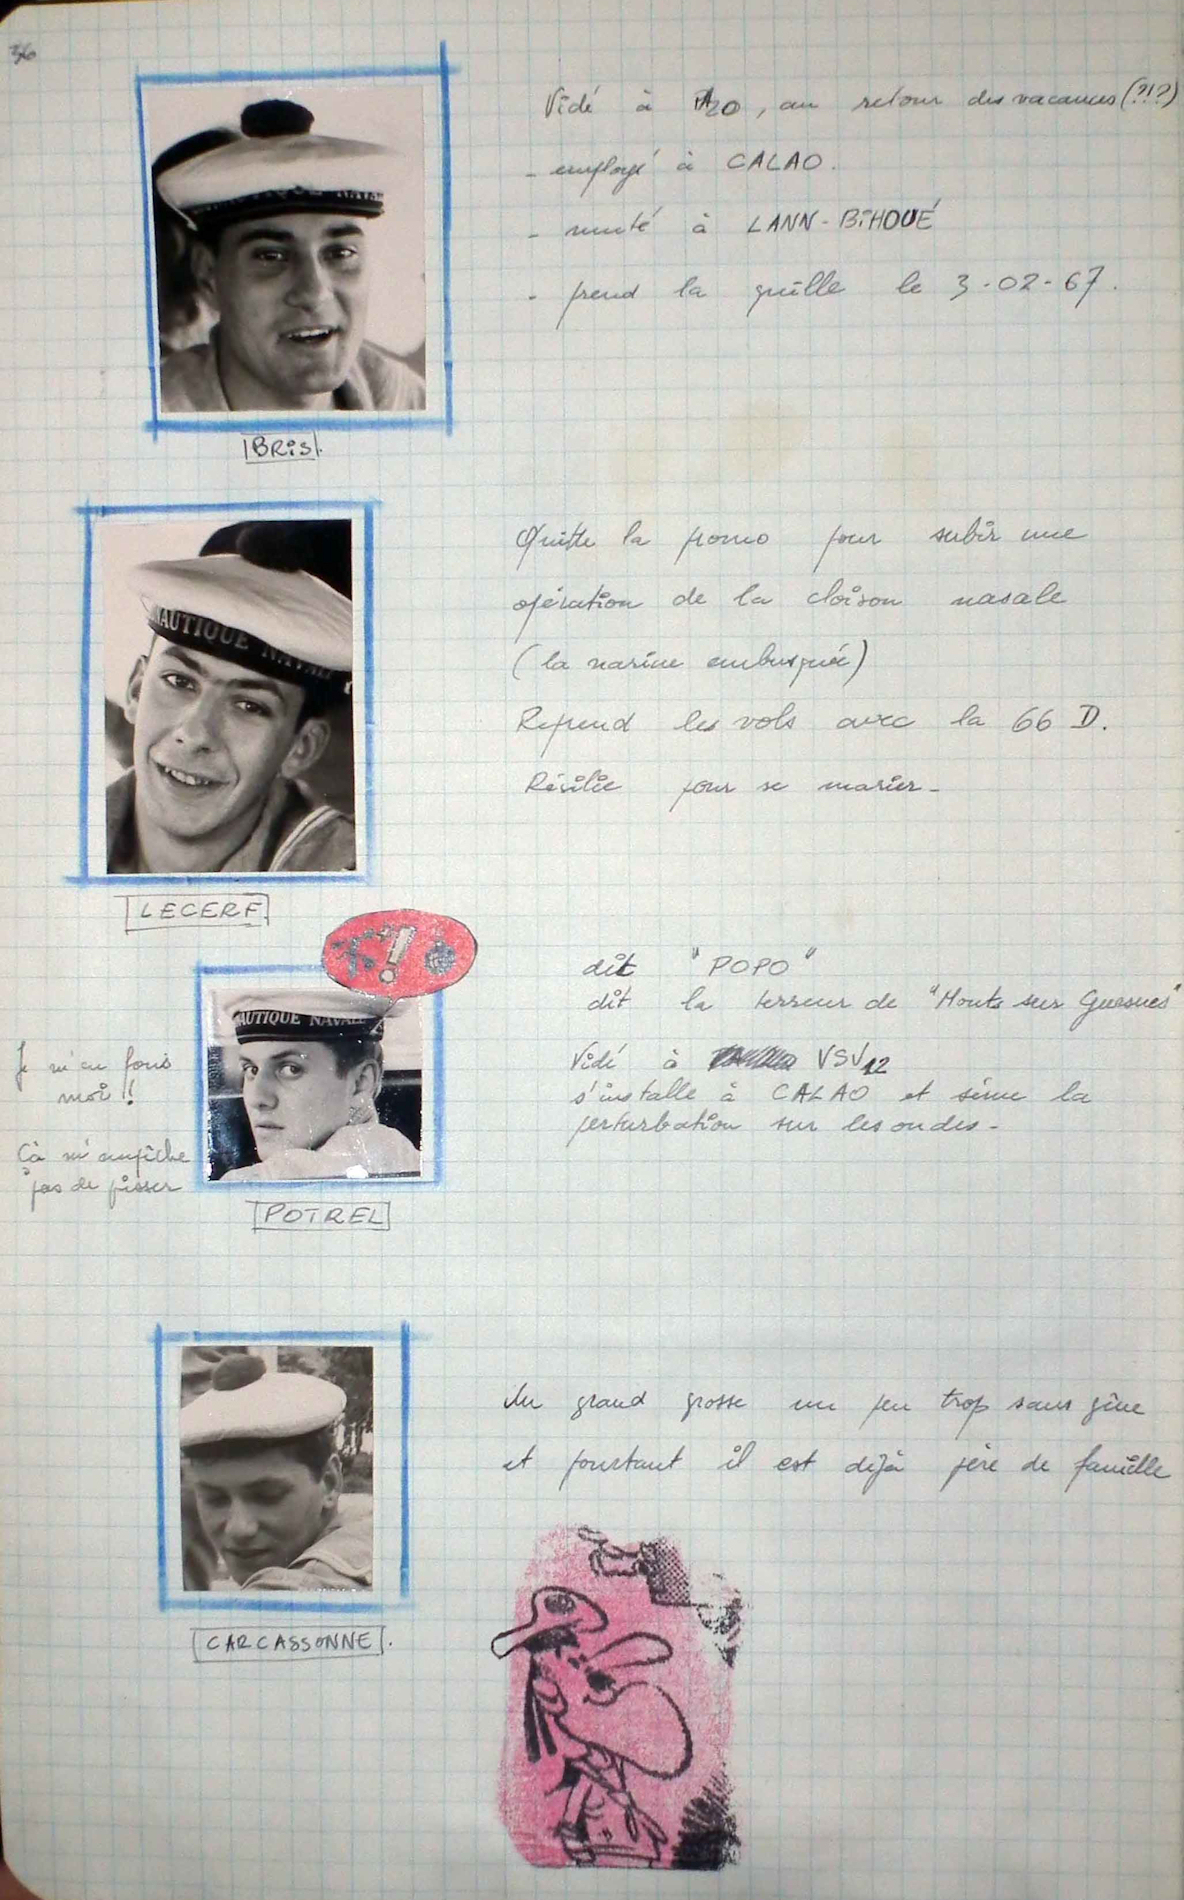 36
Vidé à A20, au retour des vacances (?!?)
- employé à CALAO.
- muté à LANN-BIHOUÉ
- prend la quille le 3-02-67.
BRIS.
AUTIQUE NAVAL
Quitte la promo pour subir une
opération de la cloison nasale
(la narine embusquée)
Reprend les vols avec la 66 D.
Résilie pour se marier -
LECERF
AUTIQUE NAVALE
dit "POPO"
dit la terreur de "Monts sur Guesnes"
Je m'en fous
moi !!
Cà m'empêche
pas de pisser
Vidé à VSV12
s'installe à CALAO et sème la
perturbation sur les ondes -
POTREL
Un grand gosse un peu trop sans gêne
et pourtant il est déjà père de famille
CARCASSONNE.